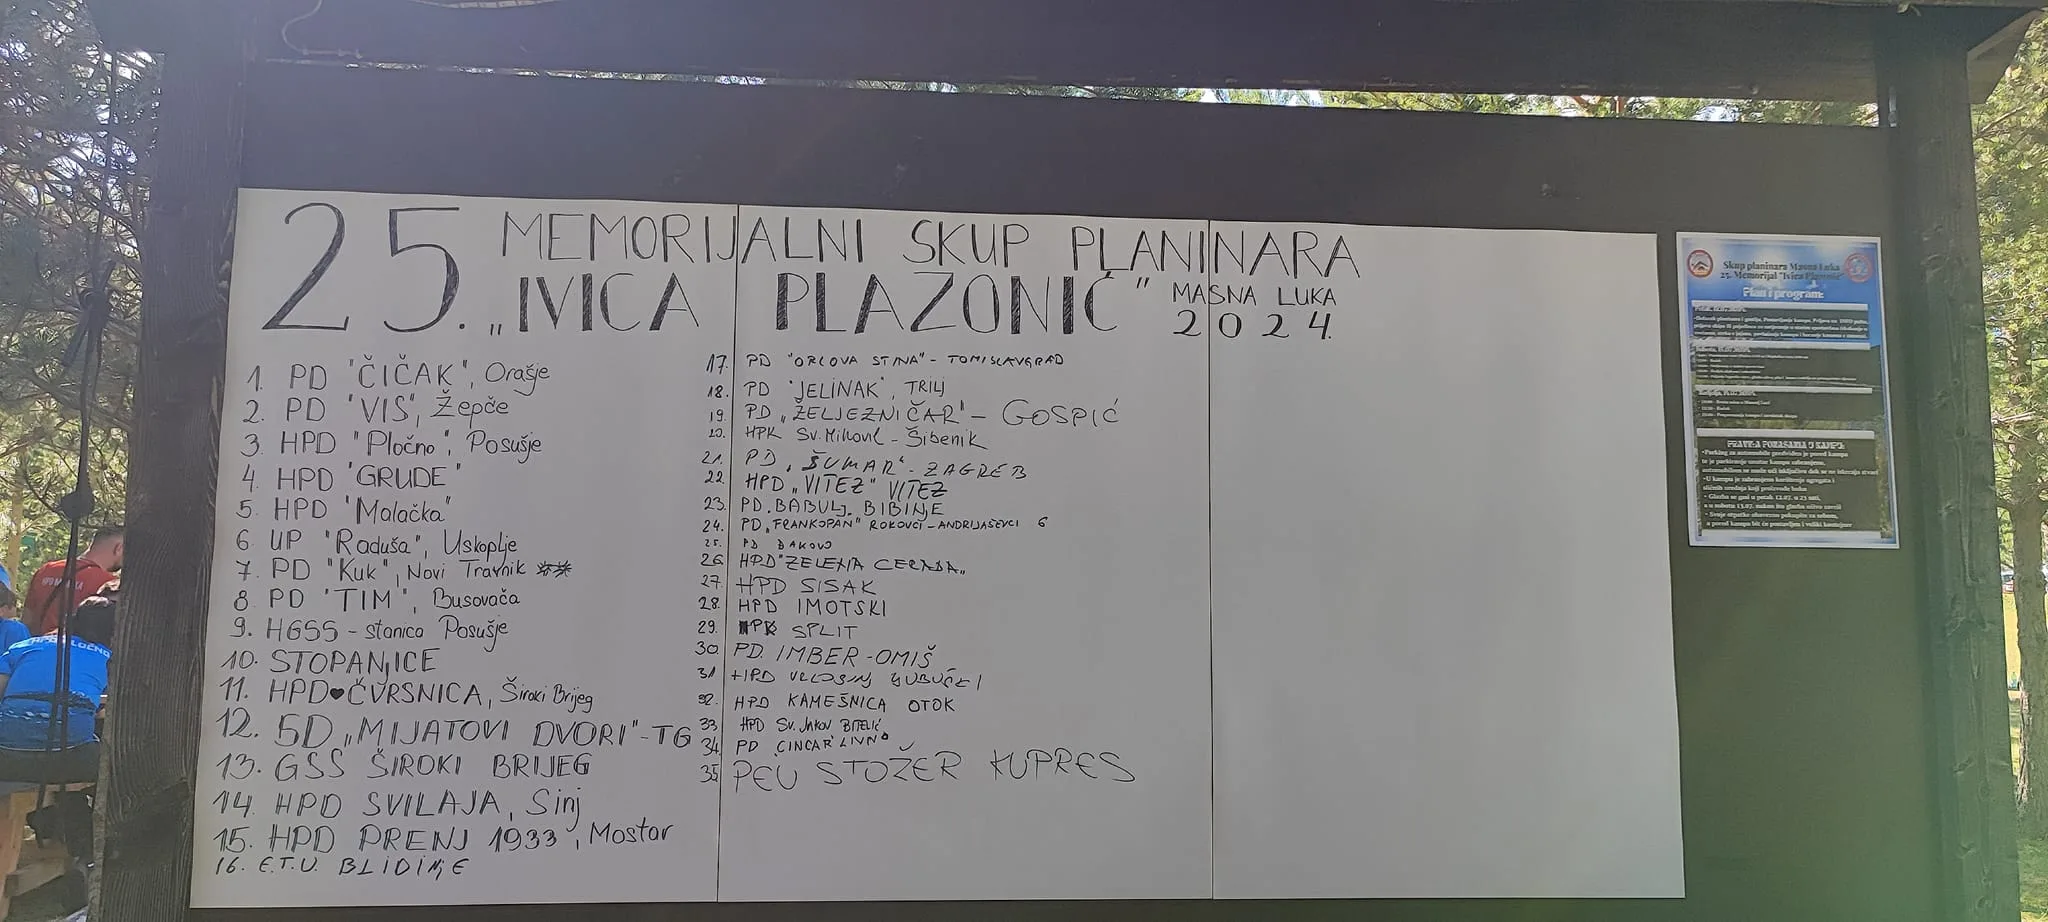 25. MEMORIJALNI SKUP PLANINARA
„IVICA PLAZONIĆ" MASNA LUKA
2024.
1. PD "ČIČAK", Orašje
2. PD "VIS", Žepče
3. HPD "Pločno", Posušje
4. HPD "GRUDE"
5. HPD "Malačka"
6. UP "Raduša", Uskoplje
7. PD "Kuk", Novi Travnik
8. PD "TIM", Busovača
9. HGSS - stanica Posušje
10. STOPANJICE
11. HPD♥ČVRSNICA, Široki Brijeg
12. SD „MIJATOVI DVORI"-TG
13. GSS ŠIROKI BRIJEG
14. HPD SVILAJA, Sinj
15. HPD PRENJ 1933, Mostar
16. E.T.U. BLIDINJE
17. PD "ORLOVA STINA" - TOMISLAVGRAD
18. PD "JELINAK", TRILJ
19. PD „ŽELJEZNIČAR"- GOSPIĆ
20. HPK Sv. Mihovil - Šibenik
21. PD „ŠUMAR"- ZAGREB
22. HPD „VITEZ" VITEZ
23. PD. BABULJ. BIBINJE
24. PD „FRANKOPAN" ROKOVCI-ANDRIJAŠEVCI 6
25. PD ĐAKOVO
26. HPD "ZELENA
27. HPD SISAK
28. HPD IMOTSKI
29. HPK SPLIT
30. PD. IMBER-OMIŠ
31. HPD
32. HPD KAMEŠNICA OTOK
33. HPD Sv. Jakov BITELIĆ
34. PD "CINCAR" LIVNO
35. PEU STOŽER KUPRES
Skup planinara Masna Luka
25. Memorijal "Ivica Plazonić"
Plan i program:
PRAVILA PONAŠANJA U KAMPU: